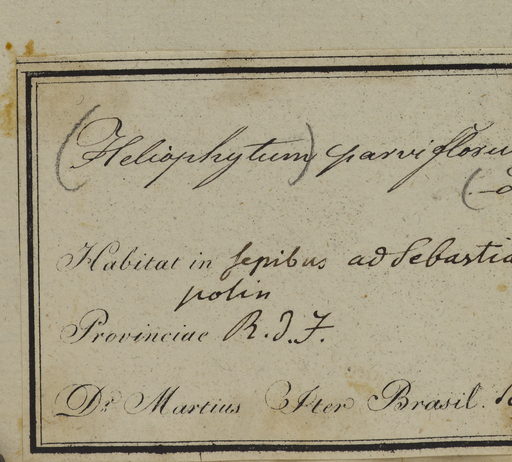 (Heliophytum) parvifloru
(-
Habitat in sepibus ad Sebastia
polin
Provinciae R. d. J.
Dr. Martius Iter Brasil.